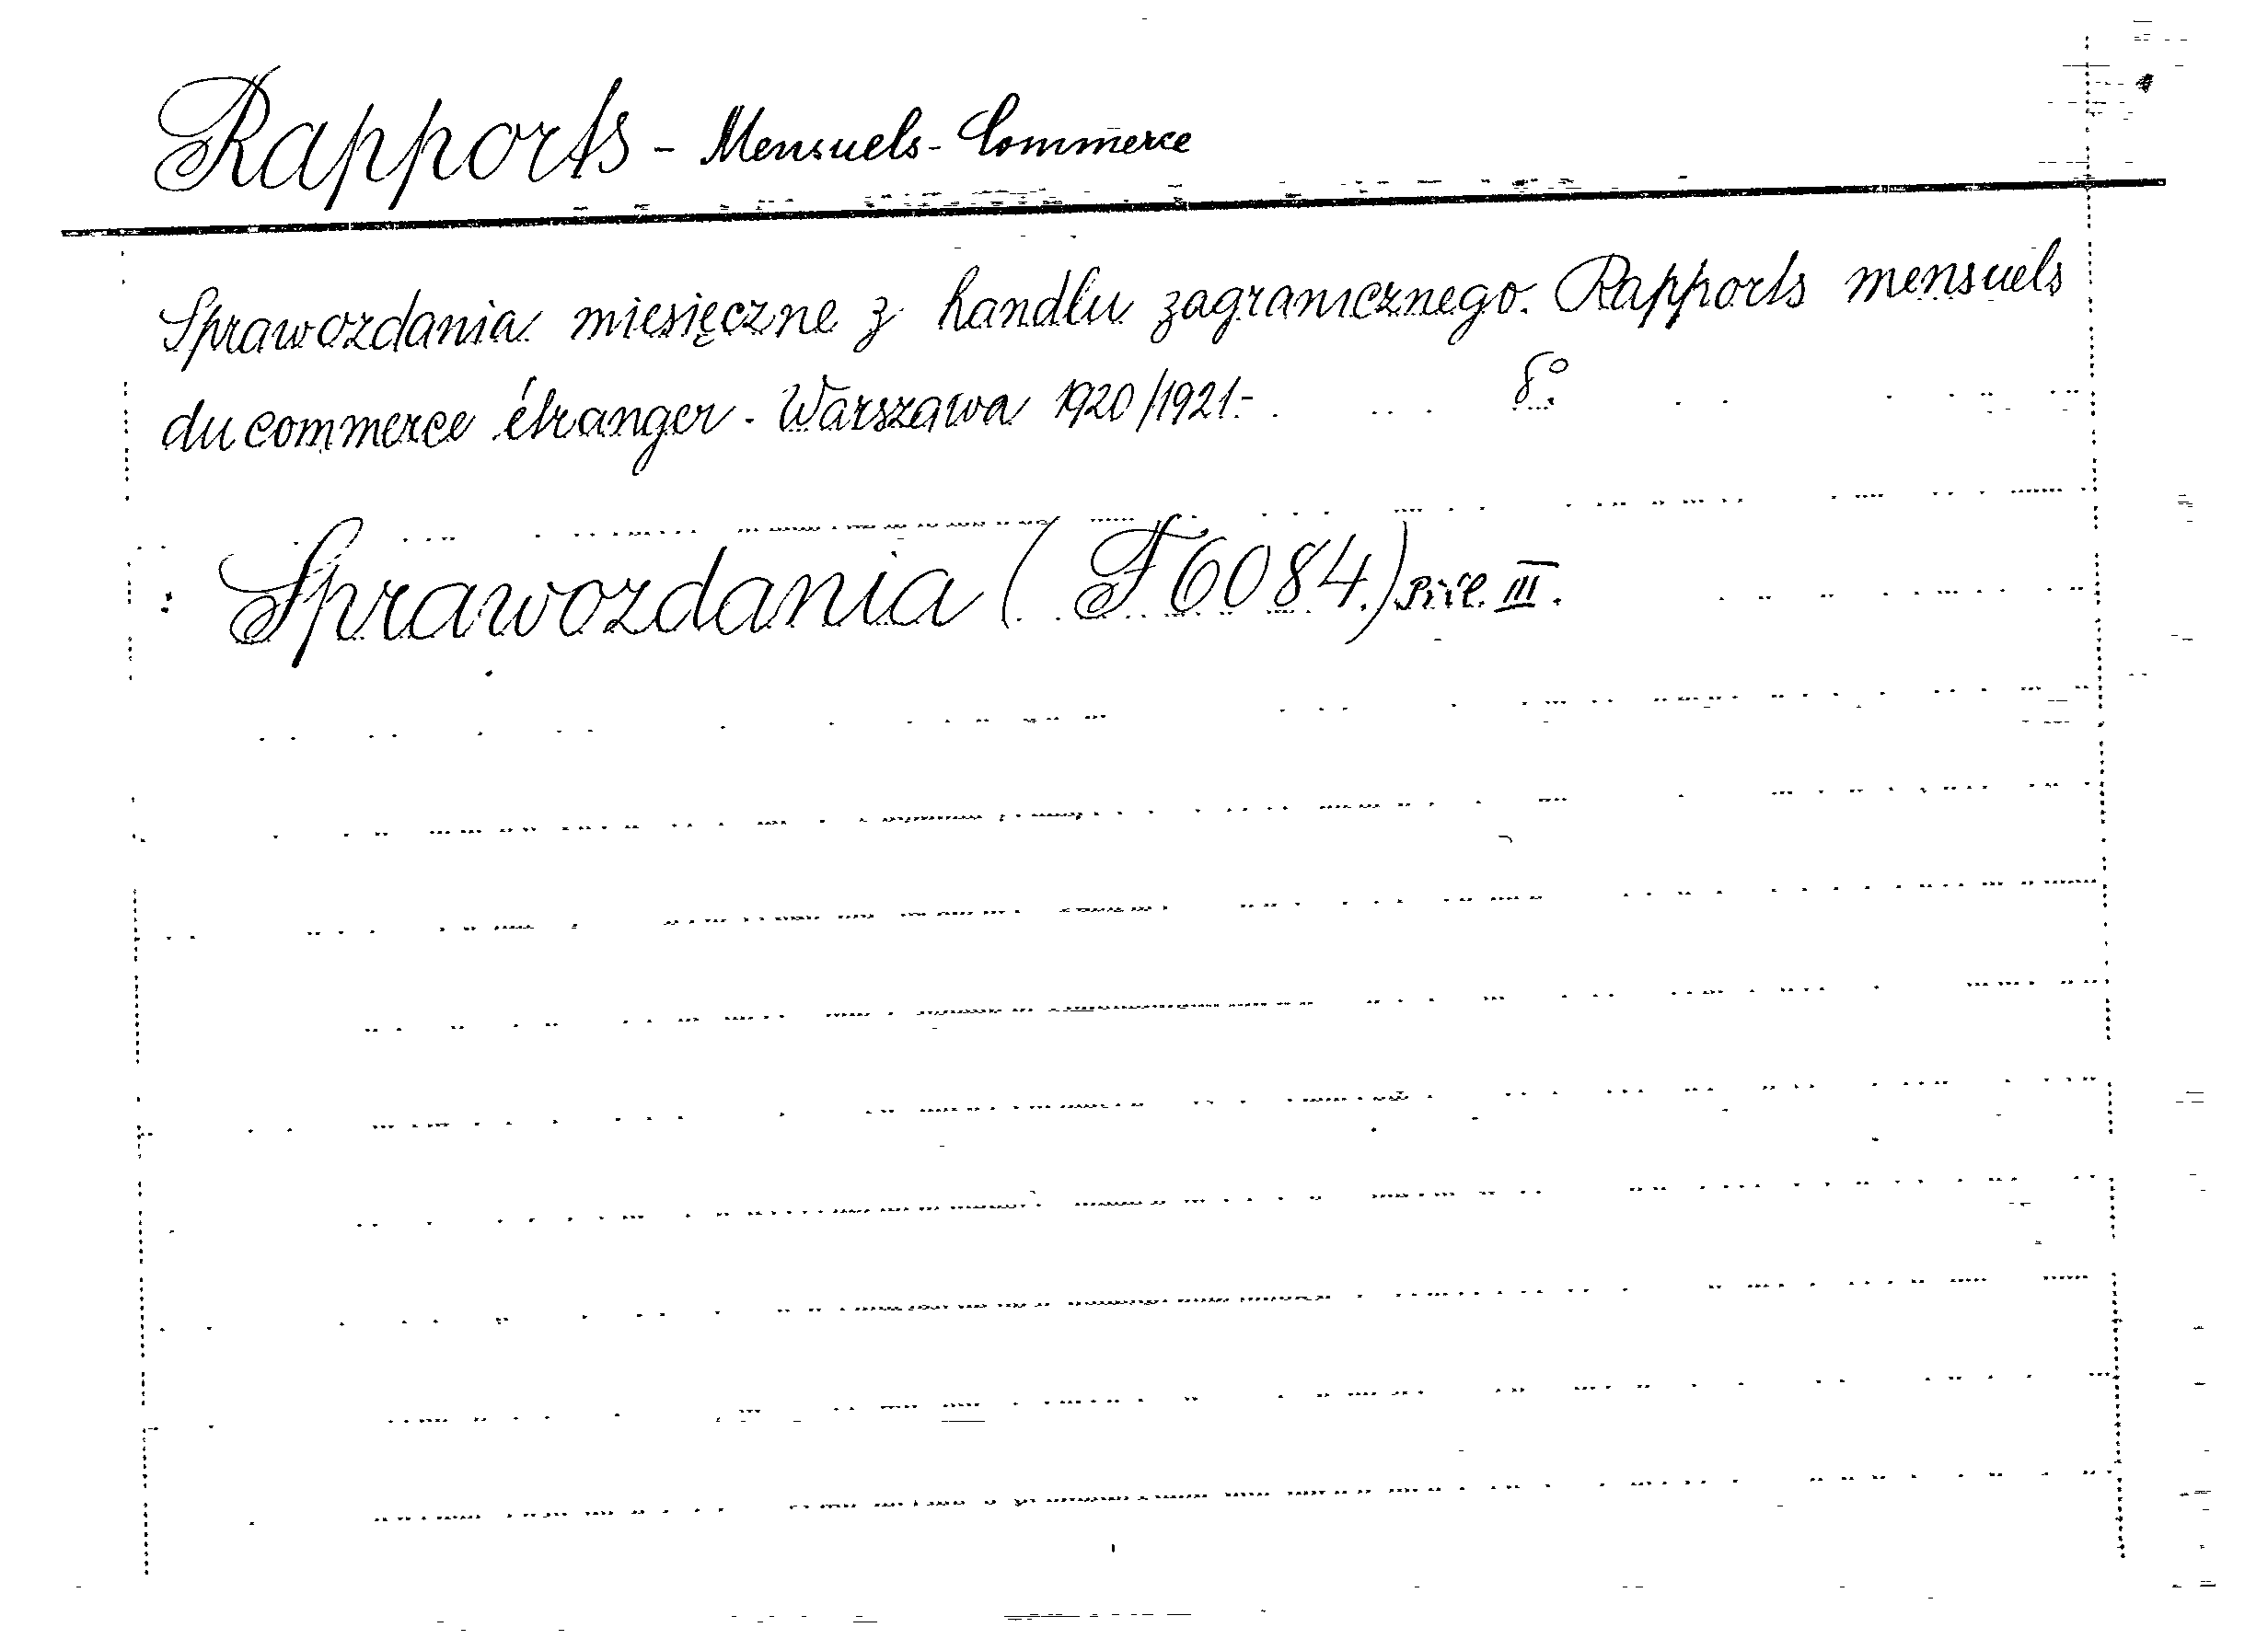 Rapports - Mensuels - Commerce
Sprawozdania miesięczne z handlu zagranicznego. Rapports mensuels
du commerce étranger. Warszawa 1920/1921.- 8°.
: Sprawozdania (F 6084.) Příl. III.